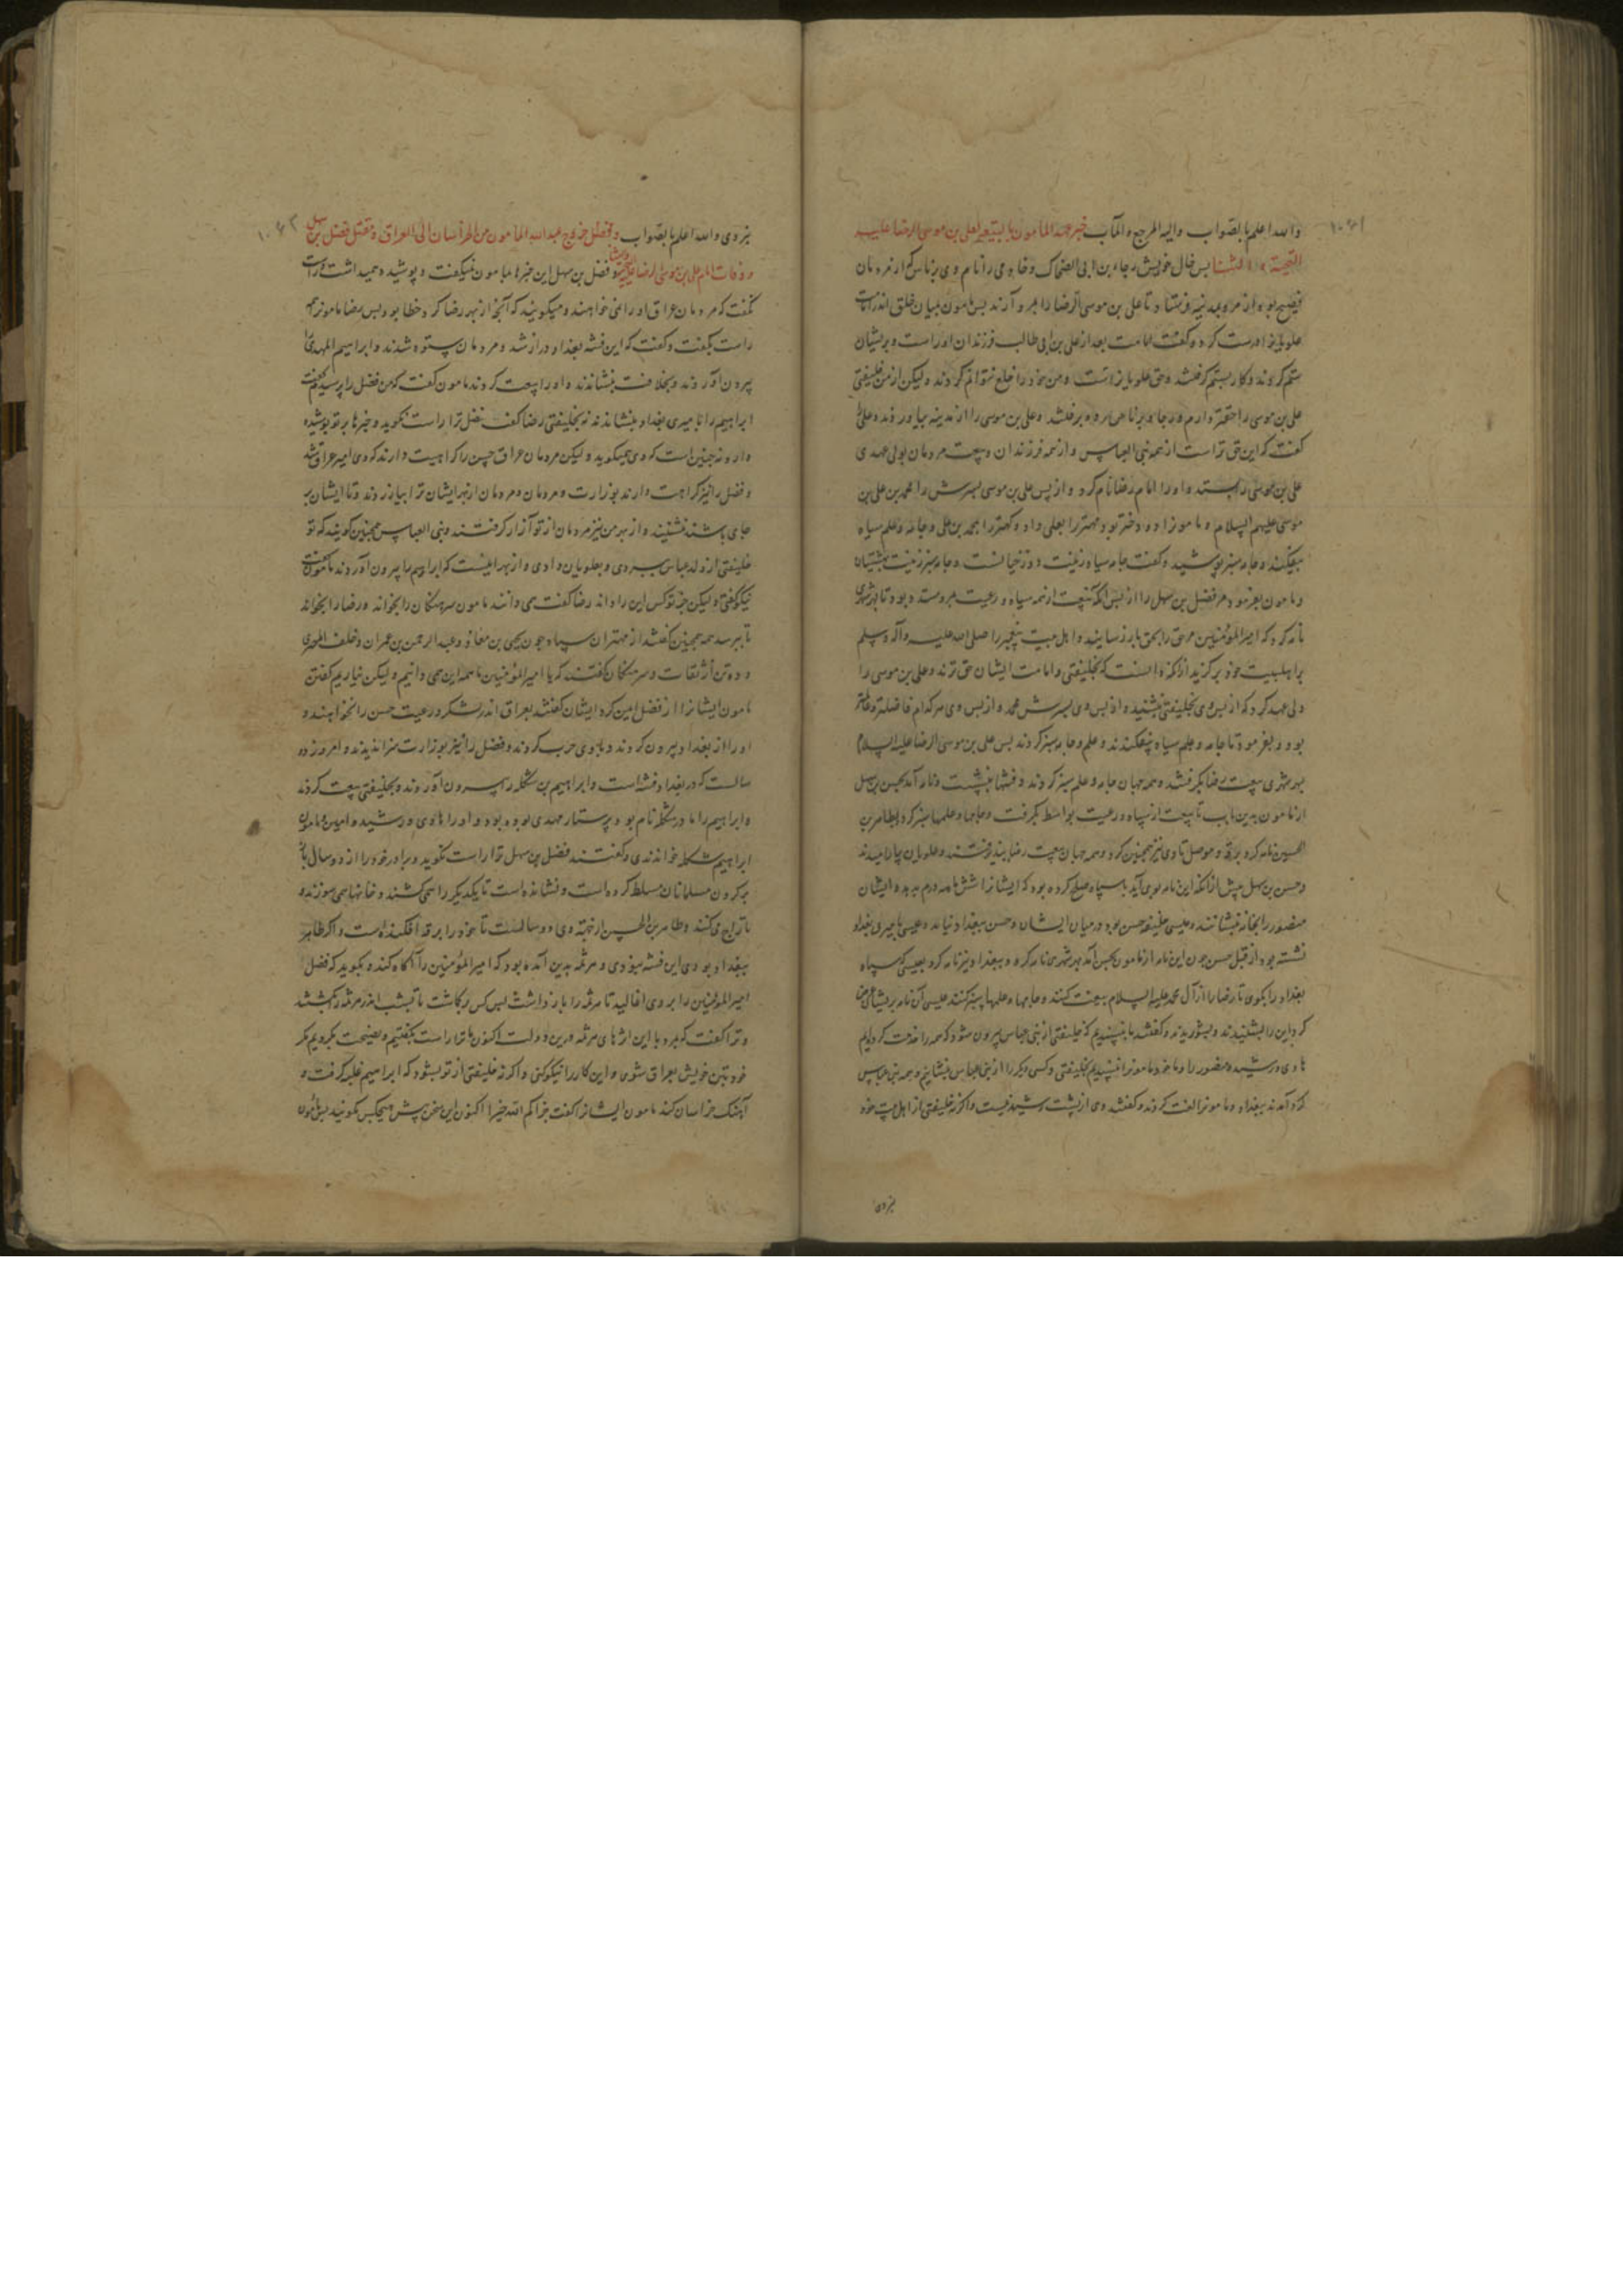 ۱۰۶۱
والله اعلم بالصواب والیه المرجع والمآب خبر عهد المامون بالبیعه لعلی بن موسی الرضا علیه
التحیة والثنا پس خال خویش رجاء بن ابی الضحاک و خادمی را نام وی
فصیح بود از مرو بمدینه فرستاد تا علی بن موسی الرضا را بمرو آرند پس مامون بمیان خلق اندر امامت
علویانرا درست کرد و گفت امامت بعد از علی بن ابی طالب فرزندان اوراست و بریشان
ستم کردند و کار بستم گرفتند و حق علویانراست و من خود را خلع نتوانم کردن و لیکن از من خلیفتی
علی بن موسی را و علی بن موسی را از مدینه بیاوردند و علی
گفت که این حق تراست از همه بنی العباس و از همه فرزندان و بیعت مردمان بولی عهدی
علی بن موسی را بستد و او را امام رضا نام کرد و از پس علی بن موسی پسرش را محمد بن علی بن
موسی علیهم السلام و مامون را دو دختر بود مهتر را بعلی داد و کهتر را بمحمد بن علی و جامه و علم سیاه
بیفکند و جامه سبز پوشید و گفت جامه سیاه زینت دوزخیانست و جامه سبز زینت بهشتیان
و مامون بفرمود مر فضل بن سهل را از پس آنکه بیعت از همه سپاه و رعیت بمرو ستده بود تا بهر شهری
نامه کرد که امیر المؤمنین مر حق را بحق باز رسانید و اهل بیت پیغمبر را صلی الله علیه وآله وسلم
بر اهلبیت خود برگزید از آنکه دانست که بخلیفتی و امامت ایشان حق ترند و علی بن موسی را
ولی عهد کرد که از پس وی بخلیفتی بنشیند و از پس وی پسرش محمد و از پس وی هر کدام فاضلتر و عالمتر
بود و بفرمود تا جامه و علم سیاه بیفکندند و علم و جامه سبز کردند پس علی بن موسی الرضا علیه السلام
بهر شهری بیعت رضا بگرفتند و همه جهان جامه و علم سبز کردند و فتنها بنشست و نامه آمد بحسن بن سهل
از مامون بدین باب تا بیعت از سپاه و رعیت بواسط بگرفت و جامها و علمها سبز کرد و بطاهر بن
الحسین نامه کرد برقه و موصل تا وی نیز همچنین کرد و همه جهان بیعت رضا بپذیرفتند و علویان بیارامیدند
و حسن بن سهل پیش از آنکه این نامه بوی آید با سپاه صلح کرده بود که ایشانرا شش ماهه درم بدهد و ایشان
منصور را بخانه بنشاندند و عیسی خلیفه حسن بود در میان ایشان و حسن ببغداد نیامد و عیسی بامیری بغداد
نشسته بود از قبل حسن چون این نامه از مامون بحسن آمد بهر شهری نامه کرد و ببغداد نیز نامه کرد بعیسی که سپاه
بغداد را بگوی تا رضا را از آل محمد علیه السلام بیعت کنند و جامها و علمها سبز کنند عیسی آن نامه بریشان عرضه
کرد این را بشنیدند و بشوریدند و گفتند ما نپسندیم که خلیفتی از بنی عباس بیرون شود که همه را خدمت کرده‌ایم
هادی و رشید و منصور را و ما خود مامونرا نپسندیم بخلیفتی و کسی دیگر را از بنی عباس بنشانیم و همه بنی عباس
گرد آمدند ببغداد و مامونرا لعنت کردند و گفتند وی از پشت رشید نیست و اگرنه خلیفتی از اهل بیت خود
نبردی
۱۰۶۲
نبردی والله اعلم بالصواب و فصل خروج عبدالله المامون من الخراسان الی العراق و قتل فضل بن سهل
و وفات امام علی بن موسی الرضا علیه التحیة والثنا و فضل بن سهل این خبرها بمامون نمیگفت و پوشیده همیداشت و راست
نگفت که مردمان عراق او را نمی خواهند و میگویند که آنچه از بهر رضا کرد خطا بود پس رضا مامونرا همه
راست بگفت و گفت که این فتنه بغداد دراز شد و مردمان ستوه شدند و ابراهیم المهدی را
بیرون آوردند و بخلافت بنشاندند و او را بیعت کردند مامون گفت که من فضل را پرسیدم گفت
ابراهیم را بامیری بغداد بنشاندند نه بخلیفتی رضا گفت فضل ترا راست نگوید و خبرها بر تو پوشیده
دارد نه چنین است که وی همیگوید و لیکن مردمان عراق حسن را کراهیت دارند که وی امیر عراق شد
و فضل را نیز کراهت دارند بوزارت و مردمان از بهر ایشان ترا بیازردند تا ایشان بر
جای باشند نشنیند و از بهر من نیز مردمان از تو آزار گرفتند و بنی العباس همچنین گویند که تو
خلیفتی از ولد عباس ببردی و بعلویان دادی و از بهر اینست که ابراهیم را بیرون آوردند مامون گفت
نیکو گفتی و لیکن جز تو کس این را داند رضا گفت همی دانند مامون سرهنگان را بخواند و رضا را بخواند
تا بپرسد همه همچنین گفتند از مهتران سپاه چون یحیی بن معاذ و عبد الرحمن بن عمران و خلف المصری
و ده تن از ثقات و سرهنگان گفتند که یا امیر المؤمنین ما همه این همی دانیم و لیکن نیاریم گفتن
مامون ایشانرا از فضل امین کرد ایشان گفتند بعراق اندر لشکر و رعیت حسن را نخواهند و
او را از بغداد بیرون کردند و با وی حرب کردند و فضل را نیز بوزارت نپذیرند و امروز دو
سالست که در بغداد فتنه است و ابراهیم بن شکله را بیرون آوردند و بخلیفتی بیعت کردند
و ابراهیم را مادر شکله نام بود و پرستار مهدی بوده بود و او را هادی و رشید و امین و مامون
ابراهیم شکله خواندندی و گفتند فضل بن سهل ترا راست نگوید و برادر خود را از دو سال باز
بر گردن مسلمانان مسلط کرده است و نشانده است تا یکدیگر را همی کشند و خانها همی سوزند و
تاراج می کنند و طاهر بن الحسین از دو سالست تا خود را برقه افکنده است و اگر طاهر
ببغداد بودی این فتنه نبودی و هرثمه بدین آمده بود که امیر المؤمنین را آگاه کند و بگوید که فضل
امیر المؤمنین را بر وی اغالید تا هرثمه را بازداشت پس کس برگماشت تا بشب اندر هرثمه را بکشتند
و ترا گفت که بمرد با این اثرهای هرثمه درین دولت اکنون ما ترا راست بگفتیم و نصیحت بکردیم مگر
خود بتن خویش بعراق شوی و این کار را نیکو کنی و اگرنه خلیفتی از تو بشود که ابراهیم غلبه گرفت و
آهنگ خراسان کند مامون ایشانرا گفت جزاکم الله خیرا اکنون این سخن پیش هیچکس مگوئید پس مامون